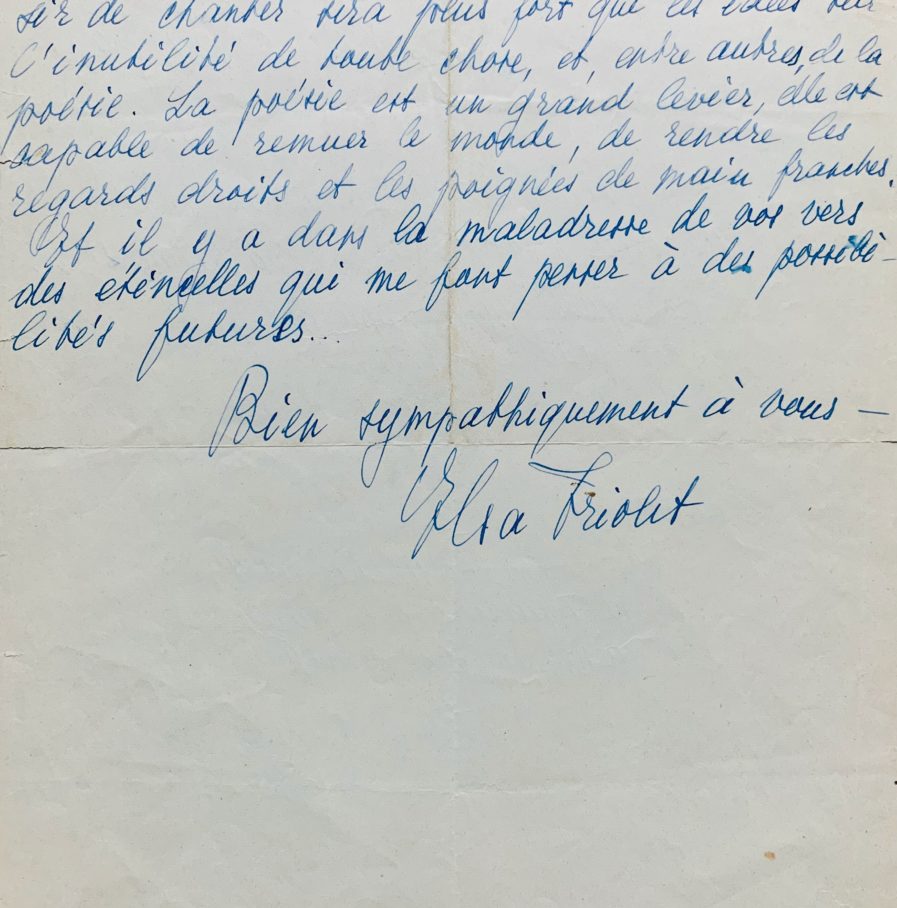 sir de chanter sera plus fort que les idées sur
l'inutilité de toute chose, et, entre autres, de la
poésie. La poésie est un grand levier, elle est
capable de remuer le monde, de rendre les
regards droits et les poignées de main franches.
Et il y a dans la maladresse de vos vers
des étincelles qui me font penser à des possibi-
lités futures...
Bien sympathiquement à vous —
Elsa Triolet